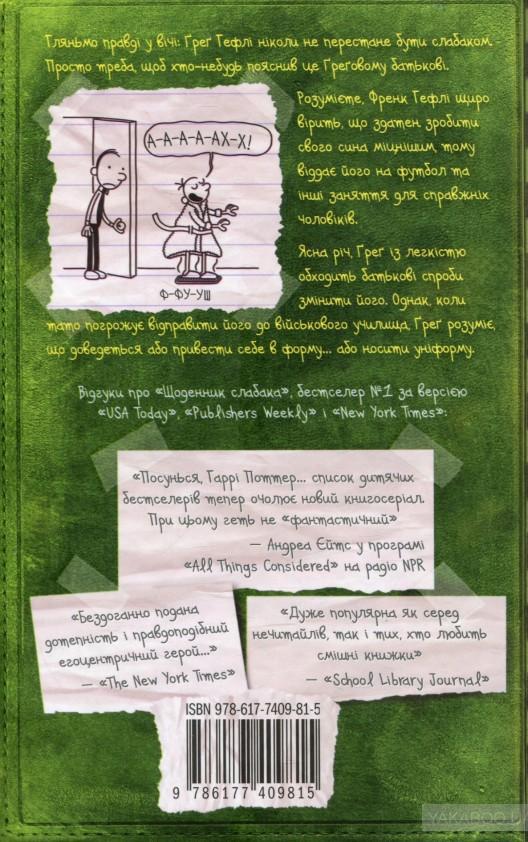 Гляньмо правді у вічі: Ґреґ Гефлі ніколи не перестане бути слабаком.
Просто треба, щоб хто-небудь пояснив це Ґреґовому батькові.
А-А-А-А-АХ-Х!
Ф-ФУ-УШ
Розумієте, Френк Гефлі щиро
вірить, що здатен зробити
свого сина міцнішим, тому
віддає його на футбол та
інші заняття для справжніх
чоловіків.
Ясна річ, Ґреґ із легкістю
обходить батькові спроби
змінити його. Однак, коли
тато погрожує відправити його до військового училища, Ґреґ розуміє,
що доведеться або привести себе в форму... або носити уніформу.
Відгуки про «Щоденник слабака», бестселер №1 за версією
«USA Today», «Publishers Weekly» і «New York Times»:
«Посунься, Гаррі Поттер... список дитячих
бестселерів тепер очолює новий книгосеріал.
При цьому геть не «фантастичний»
— Андреа Єйтс у програмі
«All Things Considered» на радіо NPR
«Бездоганно подана
дотепність і правдоподібний
егоцентричний герой...»
— «The New York Times»
«Дуже популярна як серед
нечитайлів, так і тих, хто любить
смішні книжки»
— «School Library Journal»
ISBN 978-617-7409-81-5
9 786177 409815